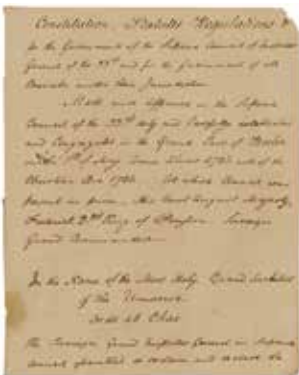 Constitution, Statutes Regulations &
for the Government of the Supreme Council of
General of the 33rd and for the Government of all
Councils under their Jurisdiction
Made and in the Supreme
Council of the 33rd duly and Carefully established
and Congregated in the Grand East of Berlin
on the 1st of May Anno Lucis 5786 and of the
Christian Era 1786. At which Council was
present in person His Most August Majesty,
Frederick 2nd King of Prussia Sovereign
Grand Commander
In the Name of the Most Holy Grand Architect
of the Universe
Ordo ab Chao
The Sovereign Grand Inspectors General in Supreme
Council and declare the